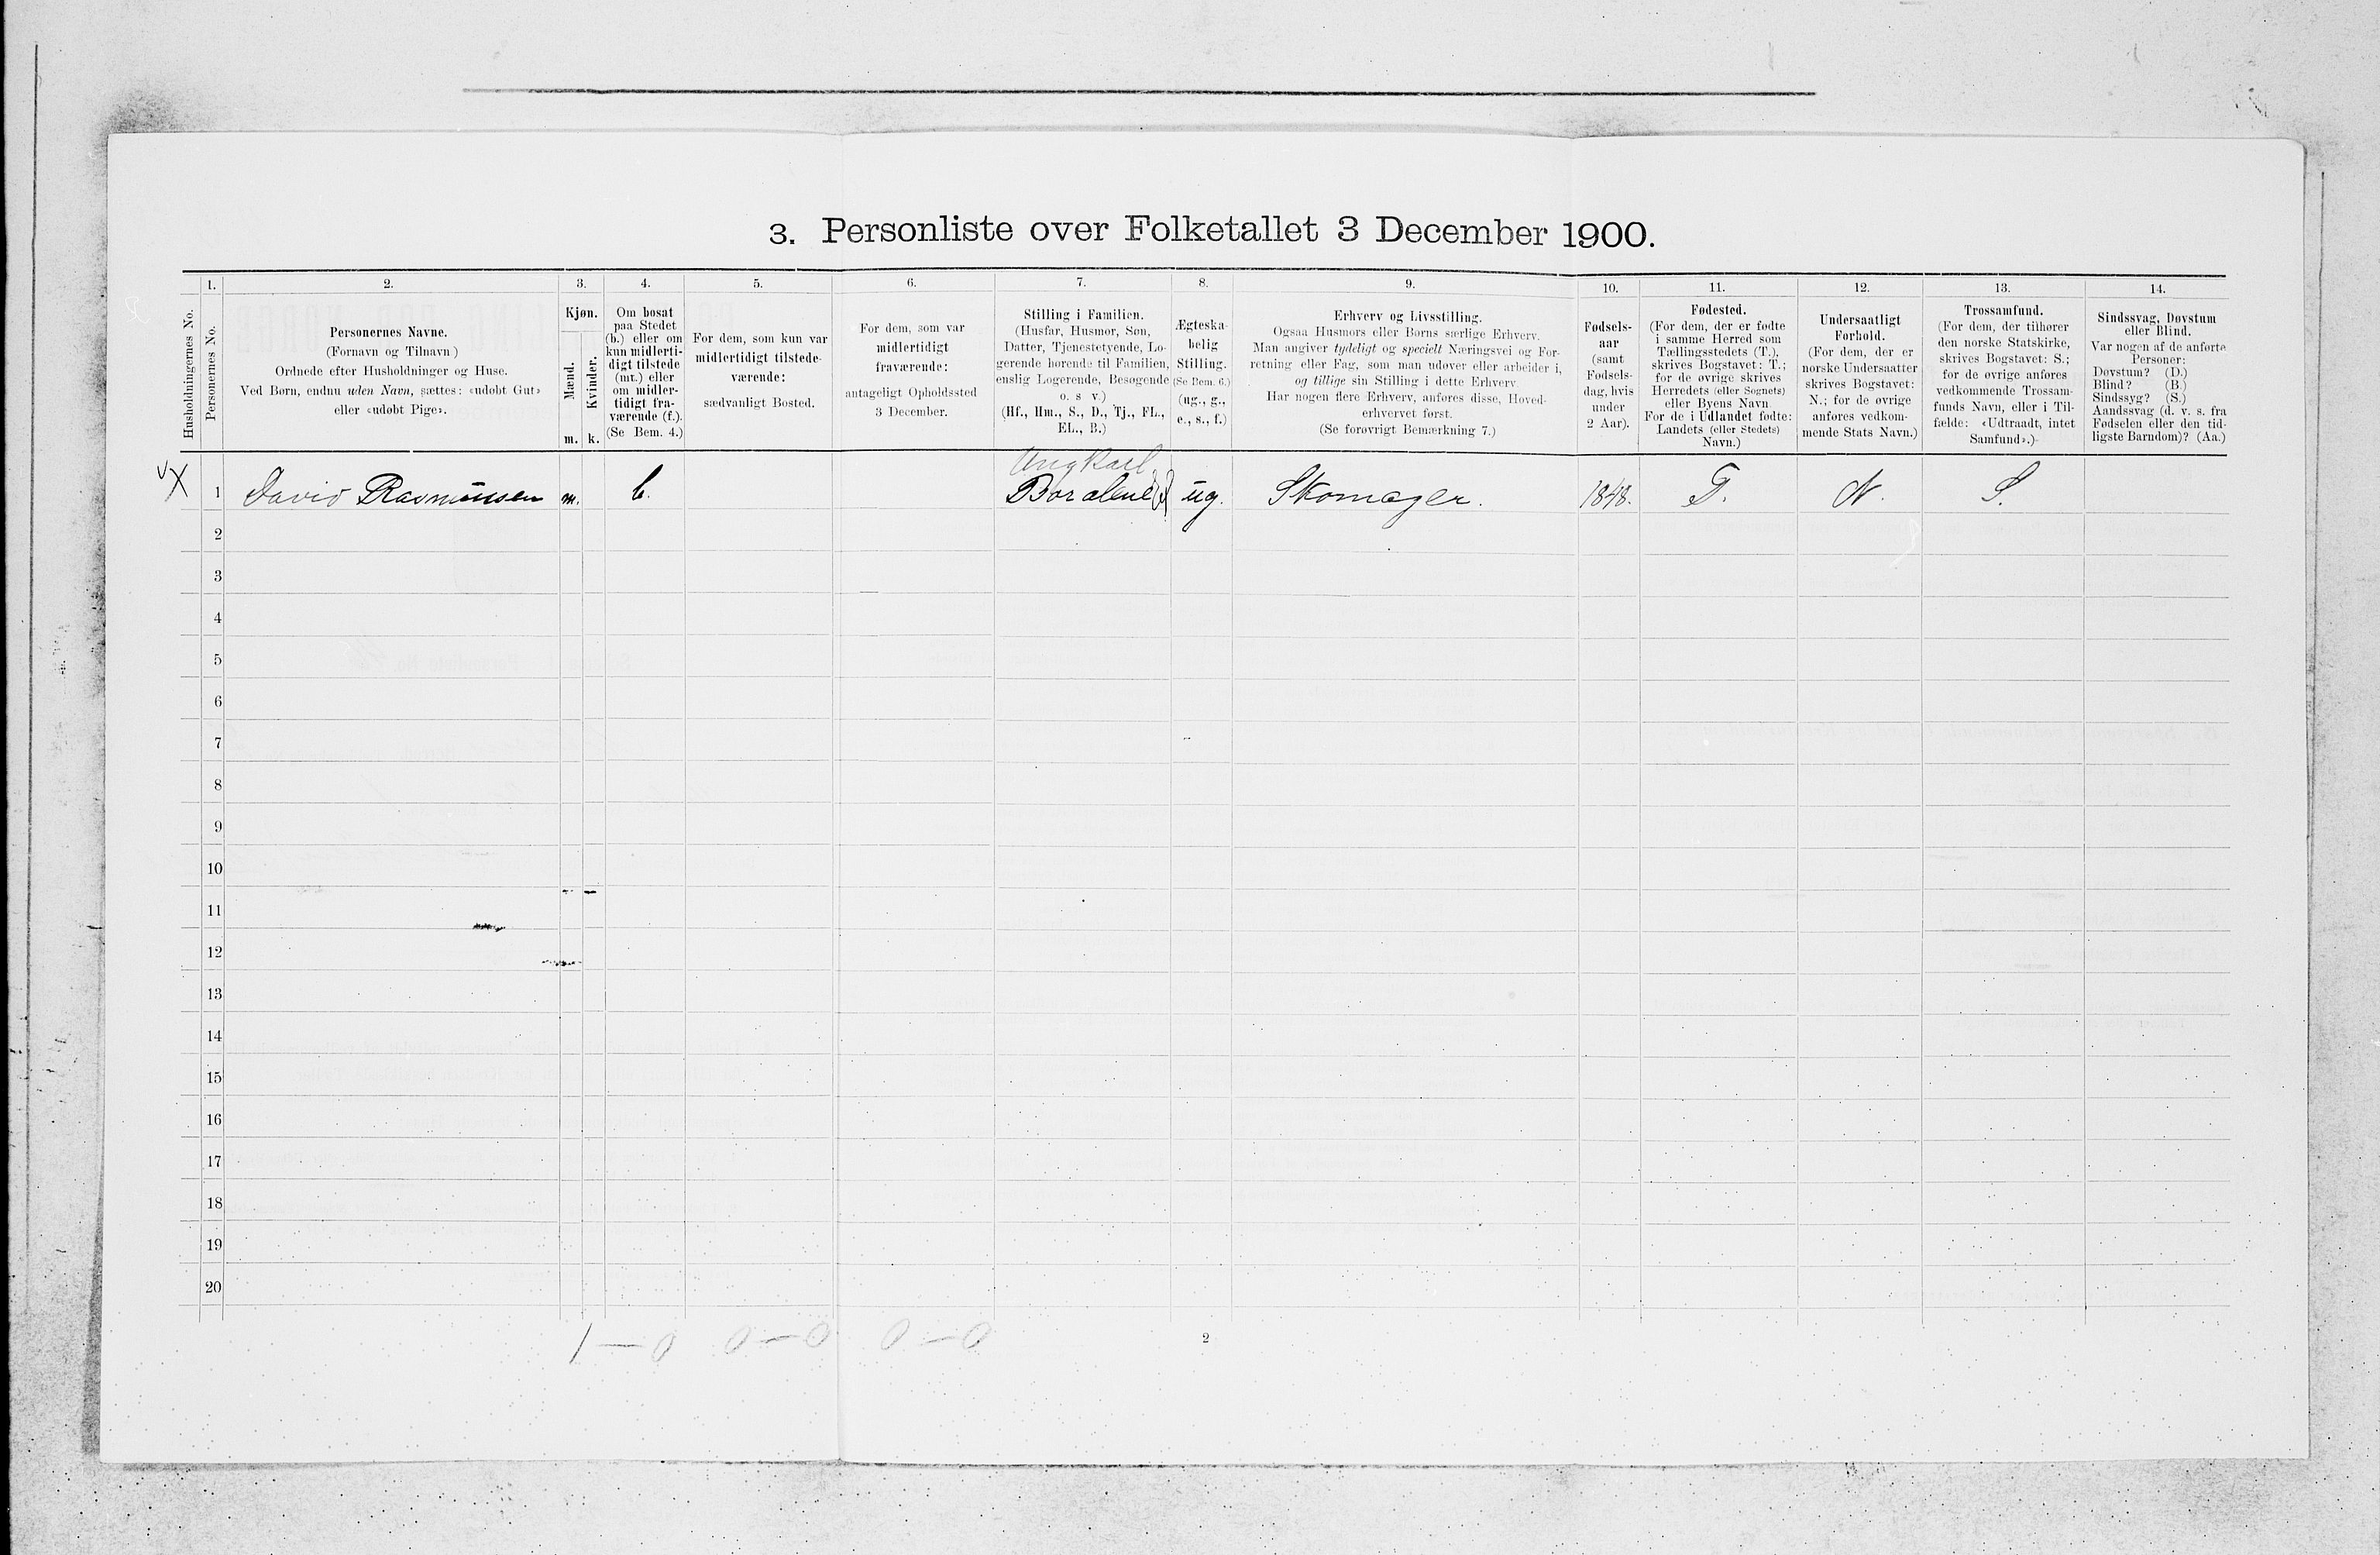 3. Personliste over Folketallet 3 December 1900.
1. 2. 3. 4. 5. 6. 7. 8. 9. 10. 11. 12. 13. 14.
Husholdningernes No.
Personernes No.
Personernes Navne.
(Fornavn og Tilnavn)
Ordnede efter Husholdninger og Huse.
Ved Børn, endnu uden Navn, sættes: «udøbt Gut»
eller «udøbt Pige».
Kjøn.
Mænd.
m.
Kvinder.
k.
Om bosat
paa Stedet
(b.) eller om
kun midlerti-
digt tilstede
(mt.) eller
om midler-
tidigt fra-
værende (f.).
(Se Bem. 4.)
For dem, som kun var
midlertidigt tilstede-
værende:
sædvanligt Bosted.
For dem, som var
midlertidigt
fraværende:
antageligt Opholdssted
3 December.
Stilling i Familien.
(Husfar, Husmor, Søn,
Datter, Tjenestetyende, Lo-
gerende hørende til Familien,
enslig Logerende, Besøgende
o. s v.)
(Hf., Hm., S., D., Tj., FL.,
EL., B.)
Ægteska-
belig
Stilling.
(Se Bem. 6.)
(ug., g.,
e., s., f.)
Erhverv og Livsstilling.
Ogsaa Husmors eller Børns særlige Erhverv.
Man angiver tydeligt og specielt Næringsvei og For-
retning eller Fag, som man udøver eller arbeider i,
og tillige sin Stilling i dette Erhverv.
Har nogen flere Erhverv, anføres disse, Hoved-
erhvervet først.
(Se forøvrigt Bemærkning 7.)
Fødsels-
aar
(samt
Fødsels-
dag, hvis
under
2 Aar).
Fødested.
(For dem, der er fødte
i samme Herred som
Tællingsstedets (T.),
skrives Bogstavet: T.;
for de øvrige skrives
Herredets (eller Sognets)
eller Byens Navn
For de i Udlandet fødte:
Landets (eller Stedets)
Navn.)
Undersaatligt
Forhold.
(For dem, der er
norske Undersaatter
skrives Bogstavet:
N.; for de øvrige
anføres vedkom-
mende Stats Navn.)
Trossamfund.
(For dem, der tilhører
den norske Statskirke,
skrives Bogstavet: S.;
for de øvrige anføres
vedkommende Trossam-
funds Navn, eller i Til-
fælde: «Udtraadt, intet
Samfund».)
Sindssvag, Døvstum
eller Blind.
Var nogen af de anførte
Personer:
Døvstum? (D.)
Blind? (B.)
Sindssyg? (S.)
Aandssvag (d. v. s. fra
Fødselen eller den tid-
ligste Barndom)? (Aa.)
Ungkarl
X 1 David Rasmussen m. b. Bor alene ug. Skomager. 1848. T. N. S.
2
3
4
5
6
7
8
9
10
11
12
13
14
15
16
17
18
19
20
1 — 0 0 — 0 0 — 0
2